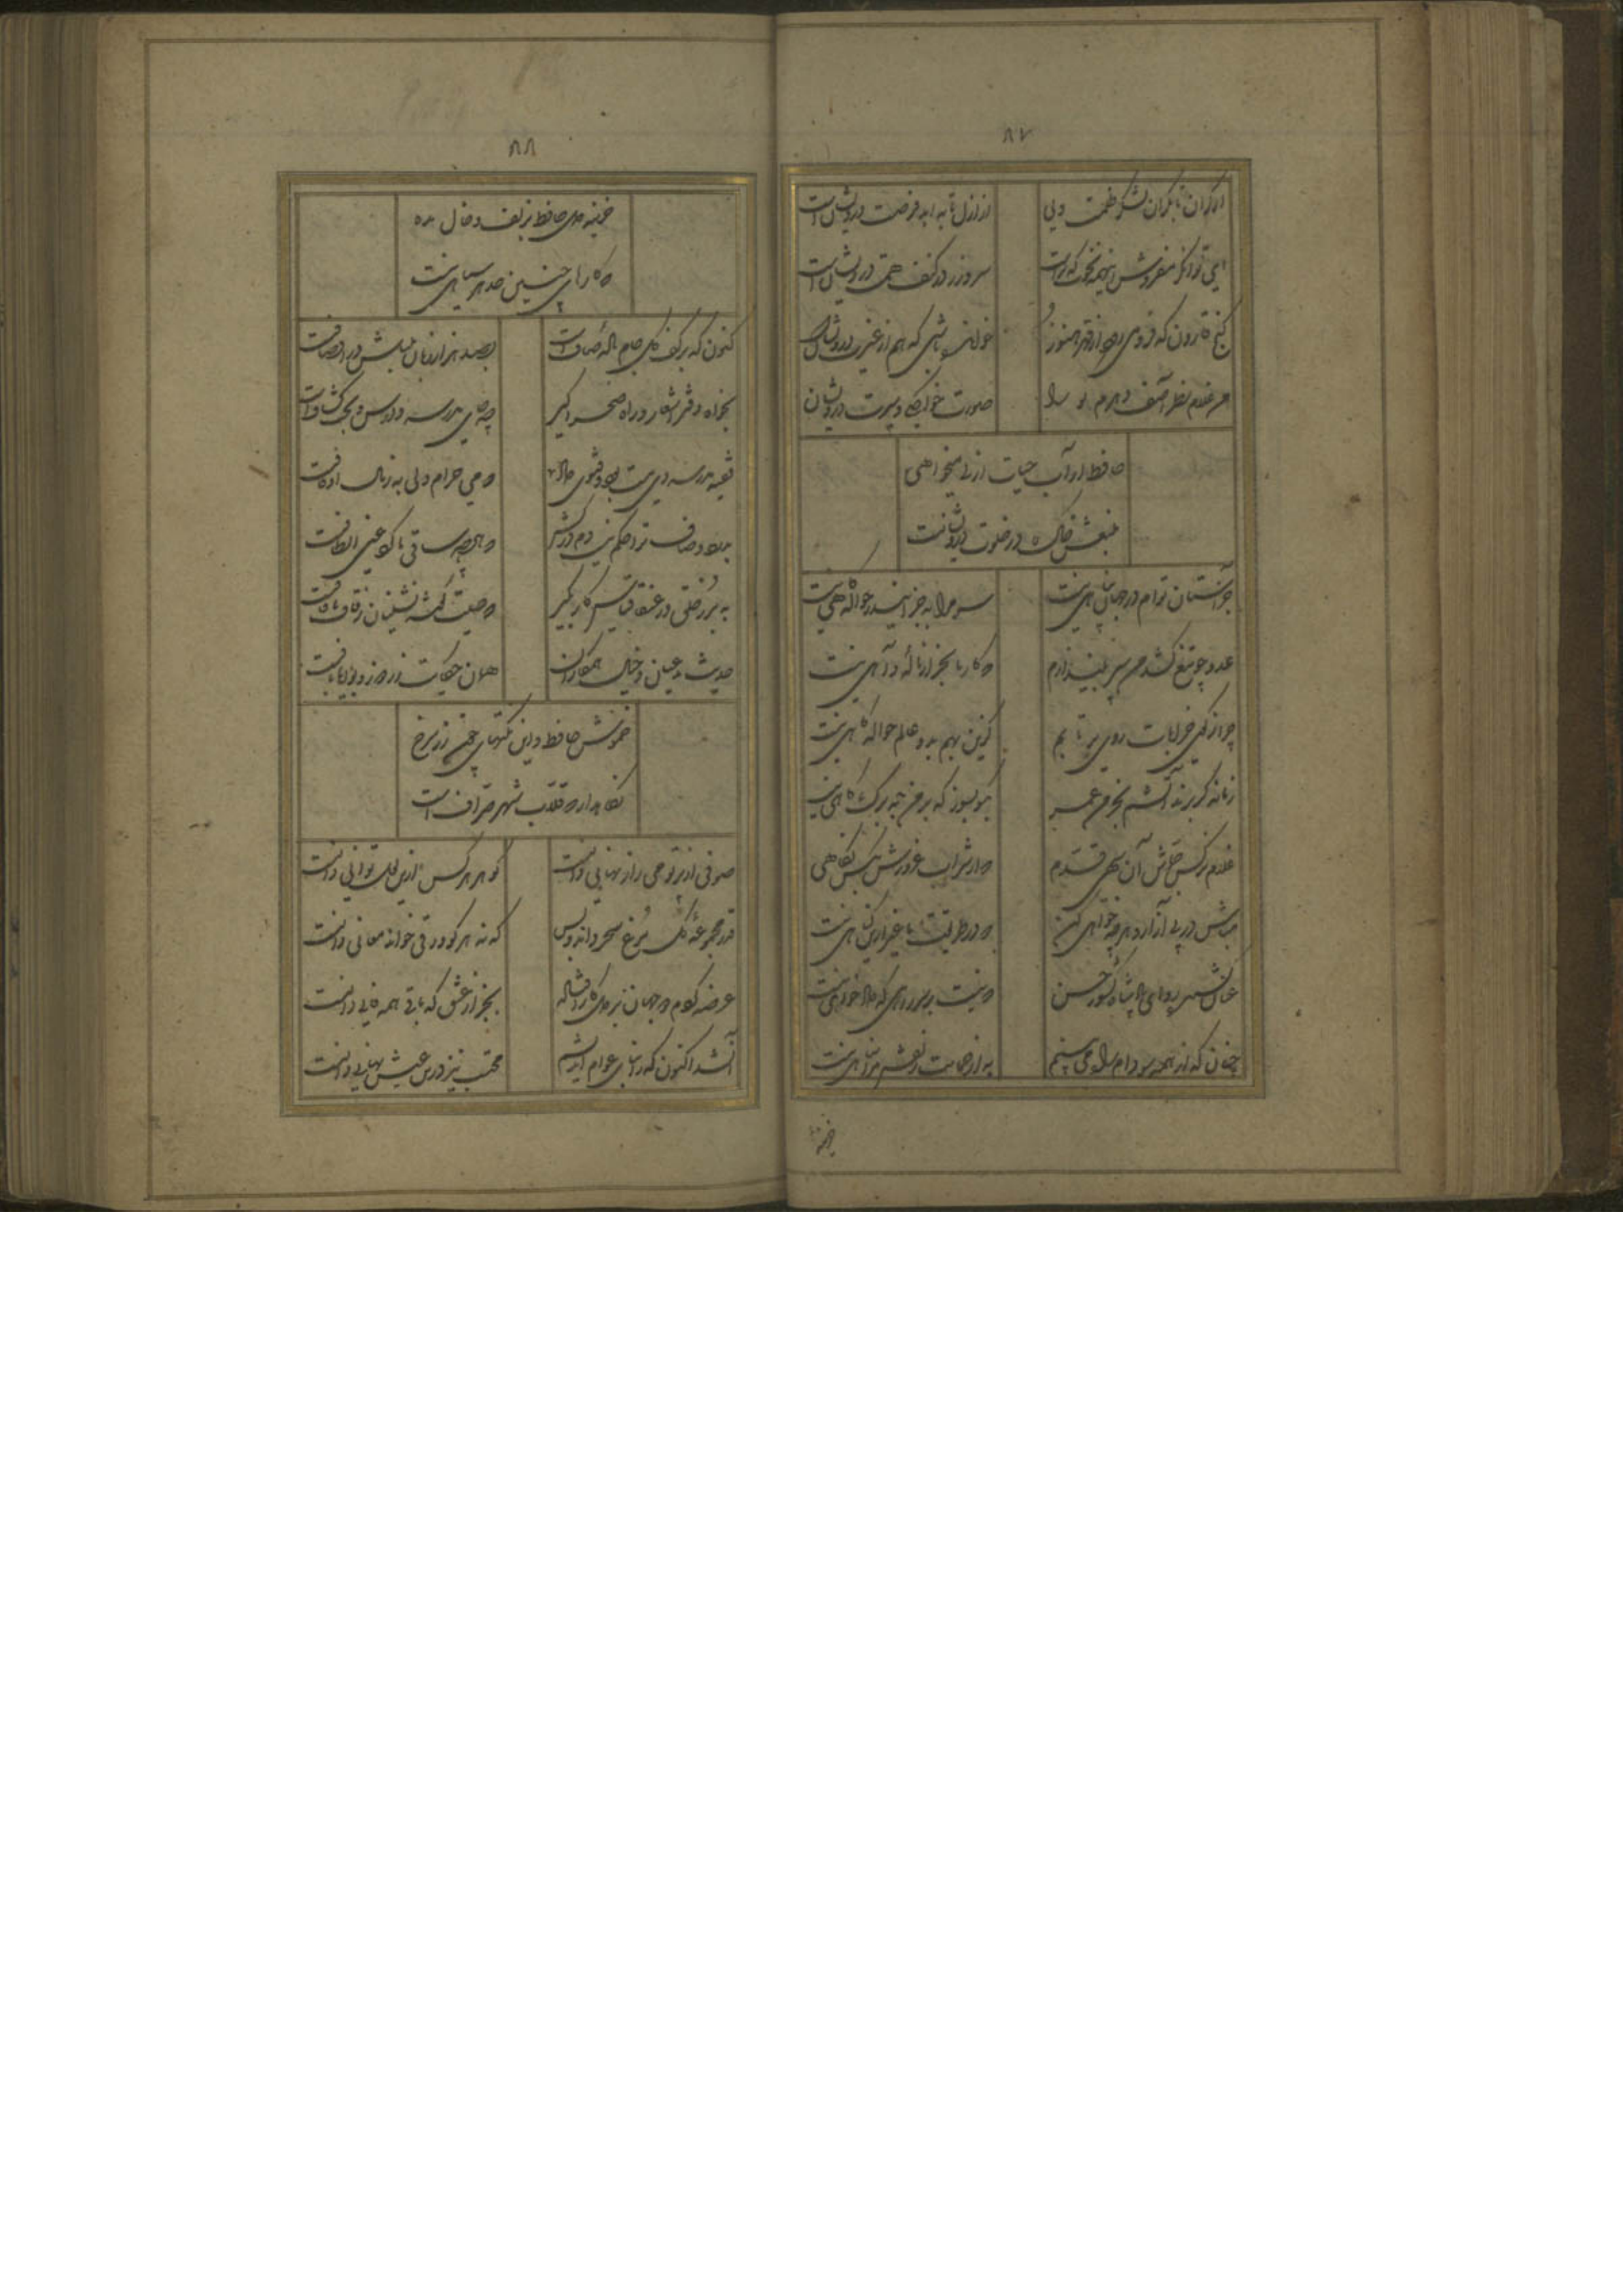 ۸۷
از کران تا بکران لشکر ظلمت ولی
از ازل تا به ابد فرصت درویشان است
ای توانگر مفروش اینهمه نخوت که ترا
سر و زر در کنف همت درویشان است
گنج قارون که فرو می رود از قهر هنوز
خوانده باشی که هم از غیرت درویشان است
من غلام نظر آصف
صورت خواجگی و سیرت درویشان
حافظ ار آب حیات ازلی میخواهی
منبعش خاک در خلوت درویشانست
جز آستان توام در جهان پناهی نیست
سر مرا به جز این در حواله گاهی نیست
عدو چو تیغ کشد من سپر بیندازم
که کار ما بجز از ناله و آهی نیست
چرا ز کوی خرابات روی بر تابم
کزین بهم بدو عالم حواله گاهی نیست
زمانه گر بزند آتشم بخرمن عمر
بگو بسوز که بر من به برگ کاهی نیست
غلام نرگس جماش آن سهی قدم
که از شراب غرورش بکس نگاهی
مباش در پی آزار و هر چه خواهی کن
که در طریقت ما غیر ازین گناهی نیست
عنان کش رو ای پادشاه کشور حسن
که نیست بر سر راهی که داد خواهی نیست
چنان که از همه سو دام راه می بینم
به از حمایت زلفش مرا پناهی نیست
۸۸
خزینه دل حافظ بزلف و خال مده
که کارهای چنین حد هر سیاهی نیست
کنون که بر کف گل جام باده صافست
بصد هزار زبان بلبلش در اوصافست
بخواه دفتر اشعار و راه صحرا گیر
چه جای مدرسه و درس و بحث کشافست
فقیه مدرسه دی مست بود و فتوی داد
که می حرام ولی به ز مال اوقافست
بدرد و صاف ترا حکم نیست دم درکش
که هر چه ساقی ما کرد عین الطافست
ببر ز خلق و ز عنقا قیاس کار بگیر
که صیت گوشه نشینان ز قاف تا قافست
حدیث مدعیان و خیال همکاران
همان حکایت زردوز و بوریابافست
خموش حافظ و این نکتهای چون زر سرخ
نگاهدار که قلاب شهر صرافست
صوفی از پرتو می راز نهانی دانست
گوهر هر کس ازین لعل توانی دانست
قدر مجموعه گل مرغ سحر داند و بس
که نه هر کو ورقی خواند معانی دانست
عرضه کردم دو جهان بر دل کار افتاده
بجز از عشق که باقی همه فانی دانست
آن شد اکنون که ز ابنای عوام اندیشم
محتسب نیز درین عیش نهانی دانست